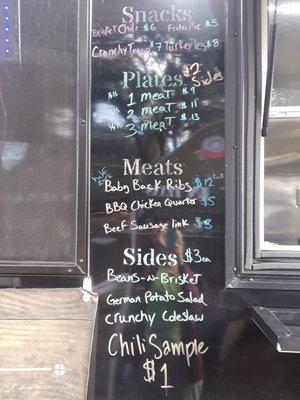 Snacks
Brisket Chili $6 Frito Pie $5
Crunchy Texan $7 Turkey leg $8
Plates 2 Sides
1 meat $9
2 meat $11
3 meat $13
Meats
Baby Back Ribs $12
BBQ Chicken Quarter $5
Beef Sausage link $3
Sides $3ea
Beans-n-Brisket
German Potato Salad
Crunchy Coleslaw
Chili Sample
$1